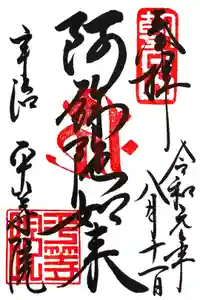 奉拝
令和元年
八月十一日
阿弥陀如来
宇治
平等院